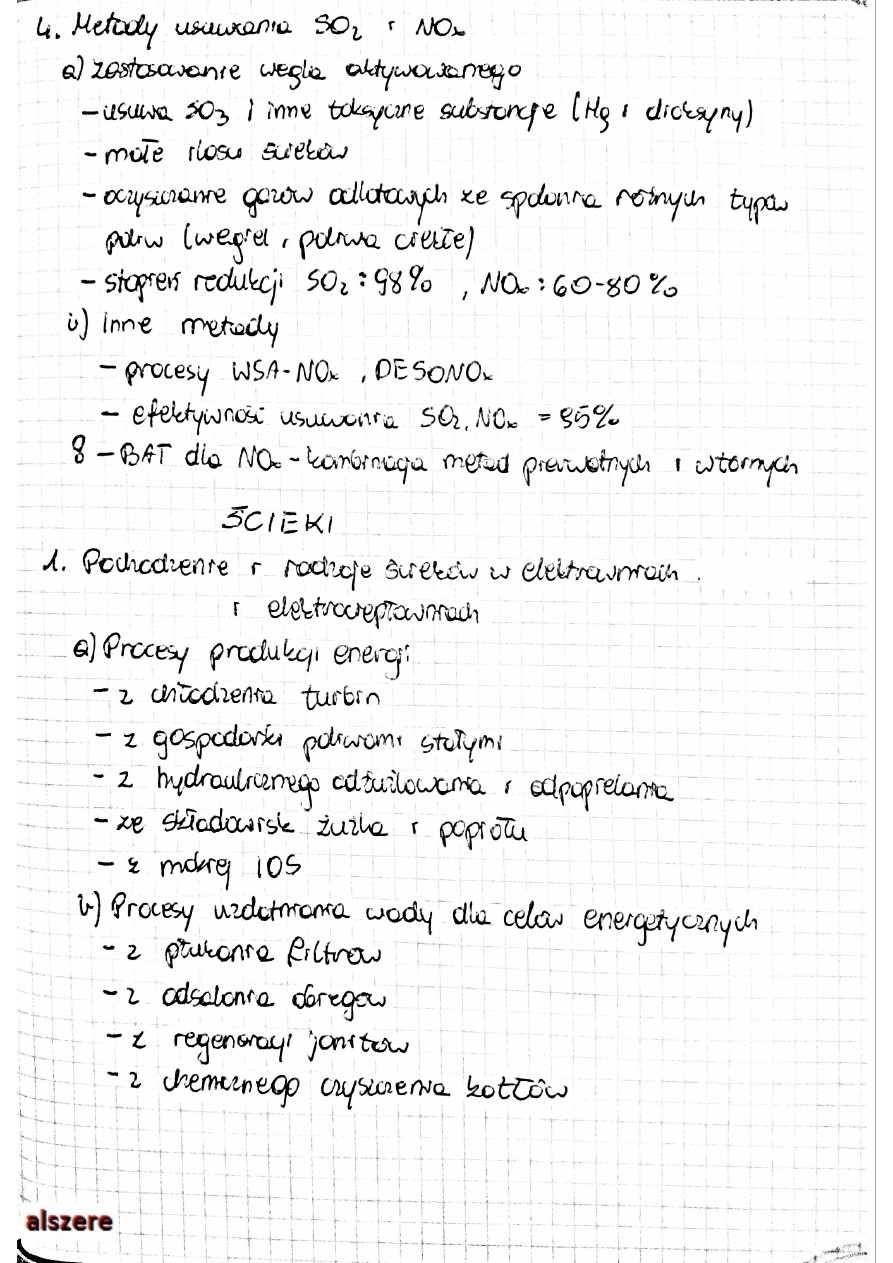 4. Metody usuwania SO₂ i NOₓ
a) zastosowanie węgla aktywowanego
- usuwa SO₃ i inne toksyczne substancje (Hg i dioksyny)
- małe ilości ścieków
- oczyszczanie gazów odlotowych ze spalania różnych typów
paliw (węgiel i paliwa ciekłe)
- stopień redukcji SO₂ : 98% , NOₓ : 60-80 %
b) inne metody
- procesy WSA-NOₓ , DESONOₓ
- efektywność usuwania SO₂, NOₓ = 95%
8 - BAT dla NOₓ - kombinacja metod pierwotnych i wtórnych
ŚCIEKI
1. Pochodzenie i rodzaje ścieków w elektrowniach
i elektrociepłowniach
a) Procesy produkcji energii
- z chłodzenia turbin
- z gospodarki paliwami stałymi
- z hydraulicznego odżużlowania i odpopielania
- ze składowisk żużla i popiołu
- z mokrej IOS
b) Procesy uzdatniania wody dla celów energetycznych
- z płukania filtrów
- z odsalania obiegów
- z regeneracji jonitów
- z chemicznego czyszczenia kotłów
alszere